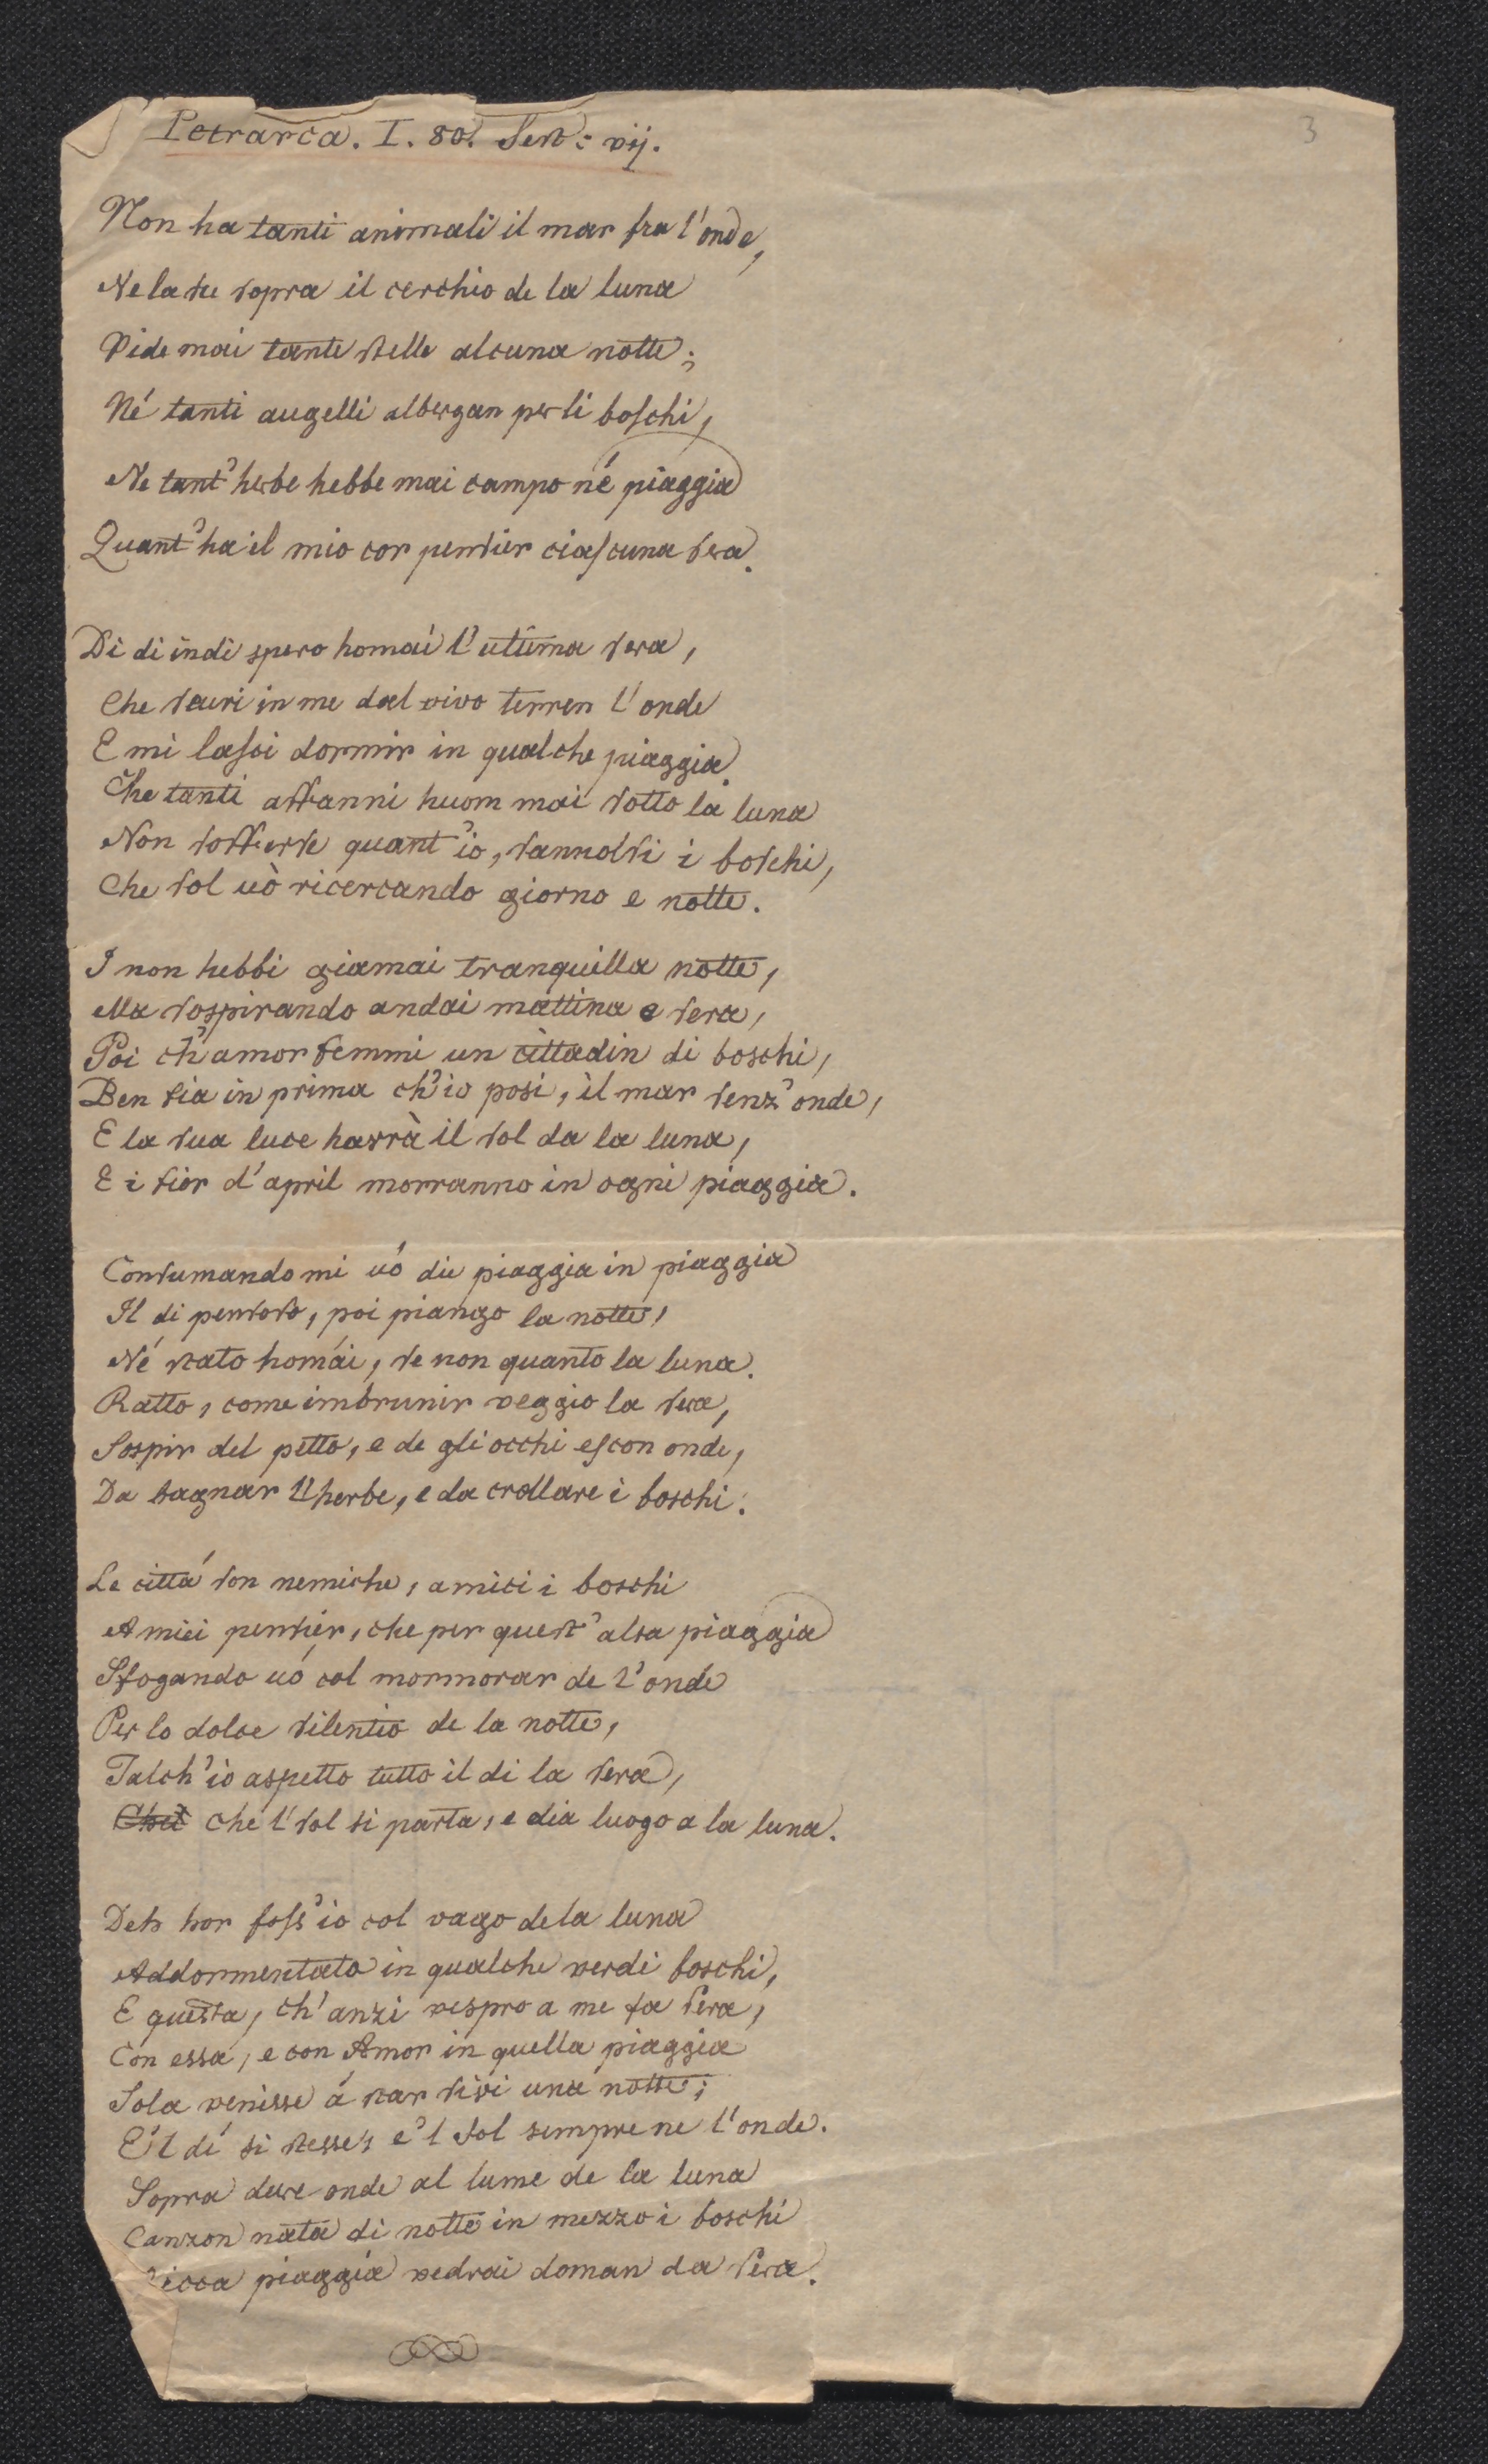 Petrarca. I. 80. Sest: vij.
3
Non ha tanti animali il mar fra l'onde,
Ne la su sopra il cerchio de la luna
Vide mai tante stelle alcuna notte;
Né tanti augelli albergan per li boschi,
Ne tant' herbe hebbe mai campo né piaggia
Quant' ha il mio cor pensier ciascuna sera.
Di di indi spero homai l'ultima sera,
Che scevri in me dal vivo terren l'onde
E mi lasci dormir in qualche piaggia.
Che tanti affanni huom mai sotto la luna
Non sofferse quant' io, sannolsi i boschi,
Che sol uò ricercando giorno e notte.
I non hebbi giamai tranquilla notte,
Ma sospirando andai mattina e sera,
Poi ch' amor femmi un cittadin di boschi,
Ben fia in prima ch'io posi, il mar senz' onde,
E la sua luce harrà il sol da la luna,
E i fior d'april morranno in ogni piaggia.
Consumando mi uó di piaggia in piaggia
Il di pensoso, poi piango la notte,
Né stato homái, se non quanto la luna.
Ratto, come imbrunir veggio la sera,
Sospir del petto, e de gli occhi escon onde,
Da bagnar l'herbe, e da crollare i boschi.
Le cittá son nemiche, amici i boschi
A miei pensier, che per quest' alta piaggia
Sfogando uó col mormorar de l'onde
Per lo dolce silentio de la notte,
Talch' io aspetto tutto il di la sera,
Che che l'sol si parta, e dia luogo a la luna.
Deh hor foss' io col vago de la luna
Addormentato in qualche verdi boschi,
E questa, ch' anzi vespro a me fa sera,
Con essa, e con Amor in quella piaggia
Sola venisse á star sivi una notte;
E'l dí si stesse, e'l sol sempre ne l'onde.
Sopra dure onde al lume de la luna
Canzon nata di notte in mezzo i boschi
Ricca piaggia vedrai doman da sera.